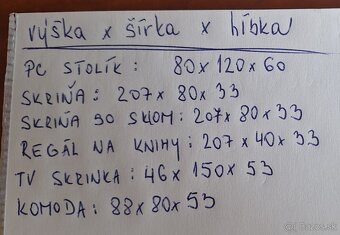 výška x šírka x hĺbka
PC STOLÍK: 80x120x60
SKRIŇA: 207x80x33
SKRIŇA SO SKLOM: 207x80x33
REGÁL NA KNIHY: 207x40x33
TV SKRINKA: 46x150x53
KOMODA: 88x80x53
Bazos.sk